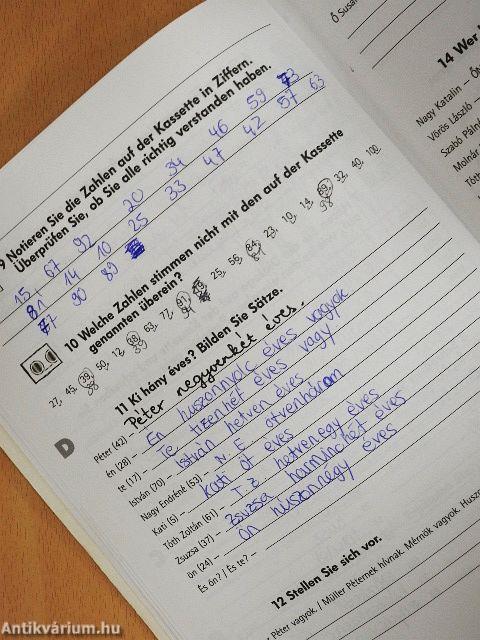 Ő Susa
14 Wer
Nagy Katalin – Ő
Vörös László
Szabó Páln
Molnár
Tóth
9 Notieren Sie die Zahlen auf der Kassette in Ziffern.
Überprüfen Sie, ob Sie alle richtig verstanden haben.
15, 67 92 20 34 46 59 73
81 14 10 25 33 47 42 57 63
77 90 89
10 Welche Zahlen stimmen nicht mit den auf der Kassette
genannten überein?
27, 45, 39, 50, 12, 68, 63, 77, 91, 25, 56, 84, 23, 10, 14, 89, 32, 40, 100.
11 Ki hány éves? Bilden Sie Sätze.
Péter (42) – Péter negyvenkét éves.
én (28) – Én huszonnyolc éves vagyok
te (17) – Te tizenhét éves vagy
István (70) – István hetven éves
Nagy Endréné (53) – N. E. ötvenhárom
Kati (5) – Kati öt éves
Tóth Zoltán (61) – T. Z. hetvenegy éves
Zsuzsa (37) – Zsuzsa harminchét éves
ön (24) – ön huszonnégy éves
És ön? / És te? –
D
12 Stellen Sie sich vor.
Péter vagyok. / Müller Péternek hívnak. Mérnök vagyok. Huszon
Antikvárium.hu